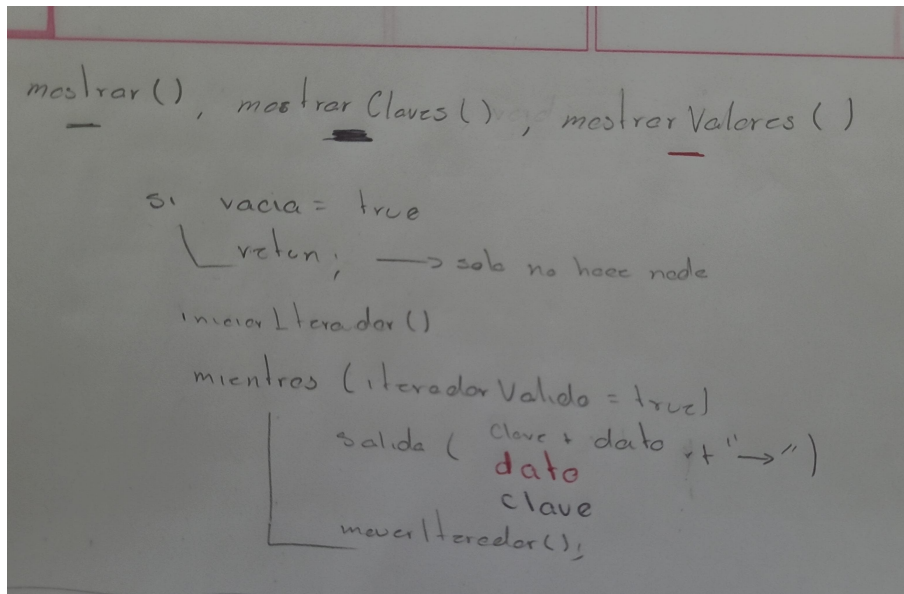 mostrar(), mostrar Claves(), mostrar Valores()
si vacia = true
retun; → solo no hace nada
iniciar Iterador()
mientras (iterador Valido = true)
salida ( clave + dato + "→")
dato
clave
mover Iterador();